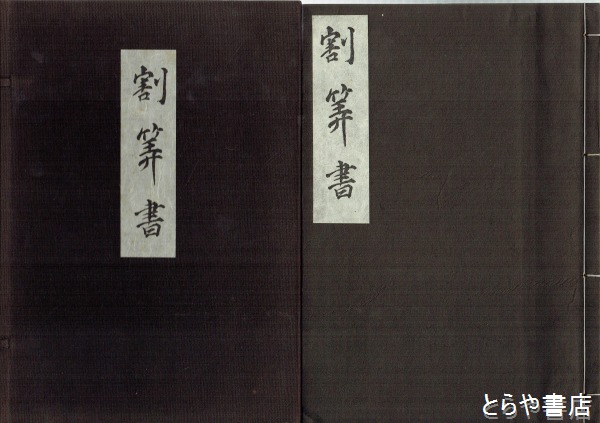 割筭書
割筭書
とらや書店